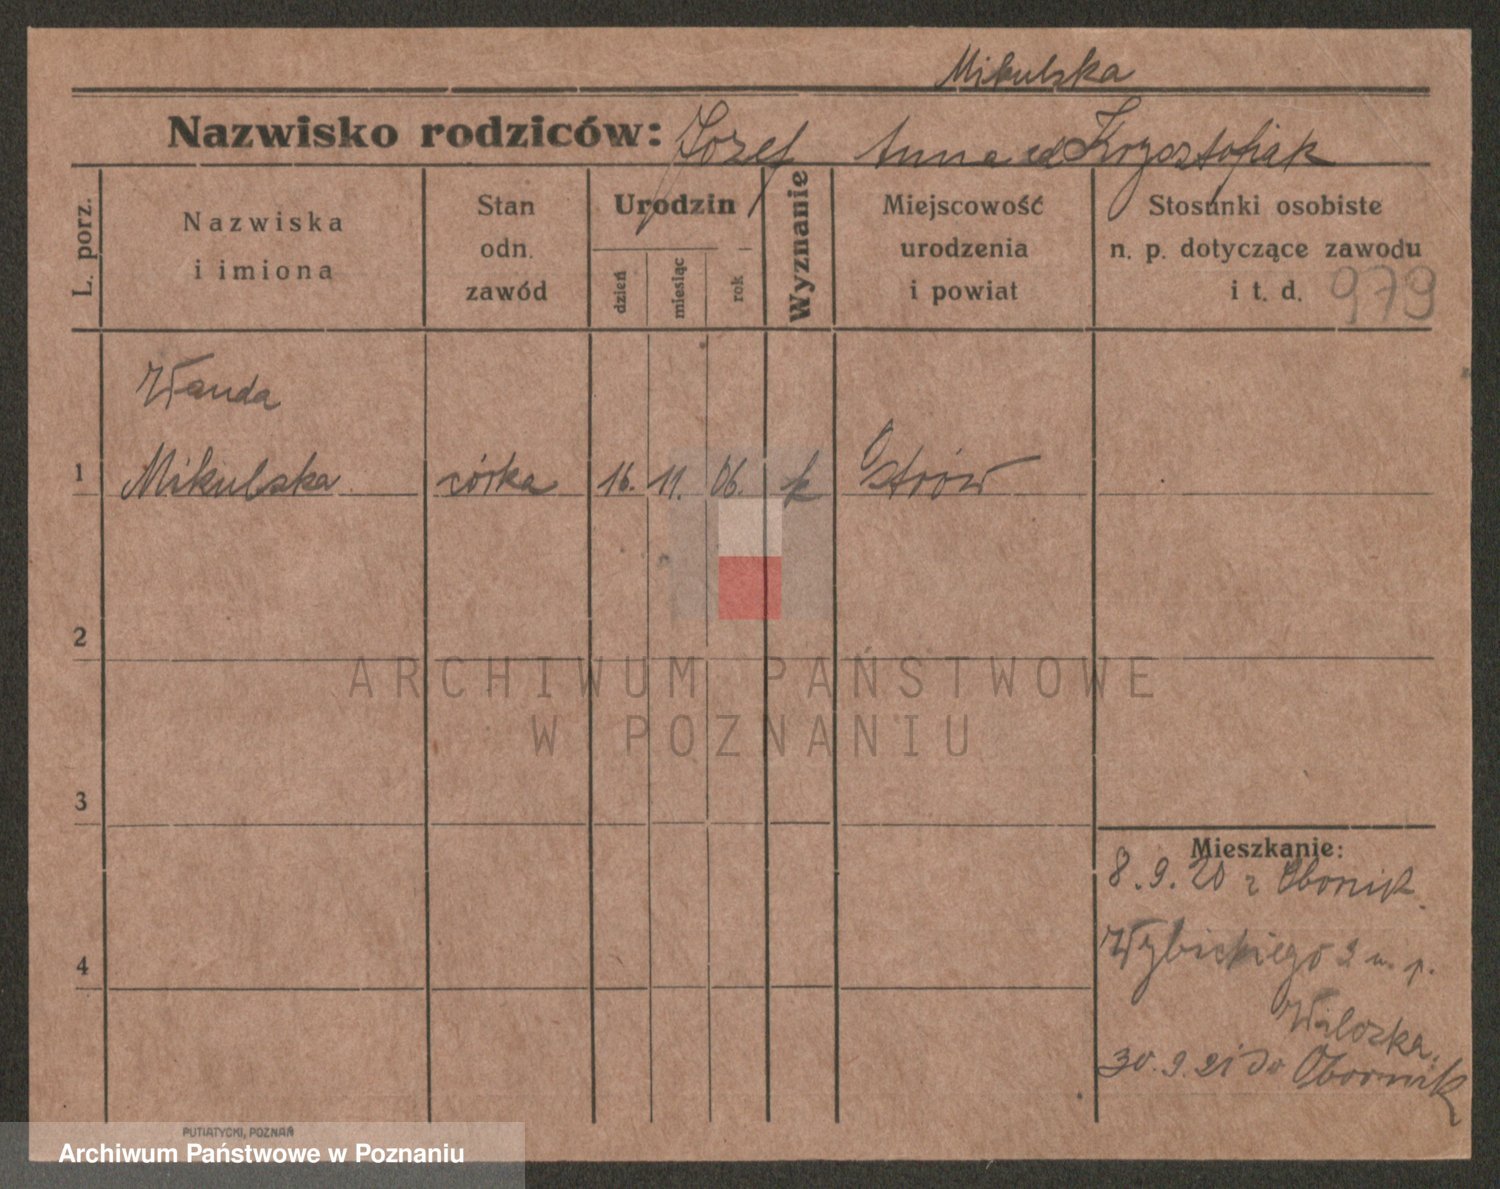 Mikulska
Nazwisko rodziców: Józef Anna Krzysztofiak
L. porz.
Nazwiska
i imiona
Stan
odn.
zawód
Urodzin
dzień
miesiąc
rok
Wyznanie
Miejscowość
urodzenia
i powiat
Stosunki osobiste
n. p. dotyczące zawodu
i t. d. 979
Wanda
1 Mikulska córka 16. 11. 06. k Ostrów
2
3
4
Mieszkanie:
8.9.20 z Obornik.
Wybickiego 2 u. p.
30.9.21 do Obornik
PUTIATYCKI, POZNAŃ
ARCHIWUM PAŃSTWOWE
W POZNANIU
Archiwum Państwowe w Poznaniu